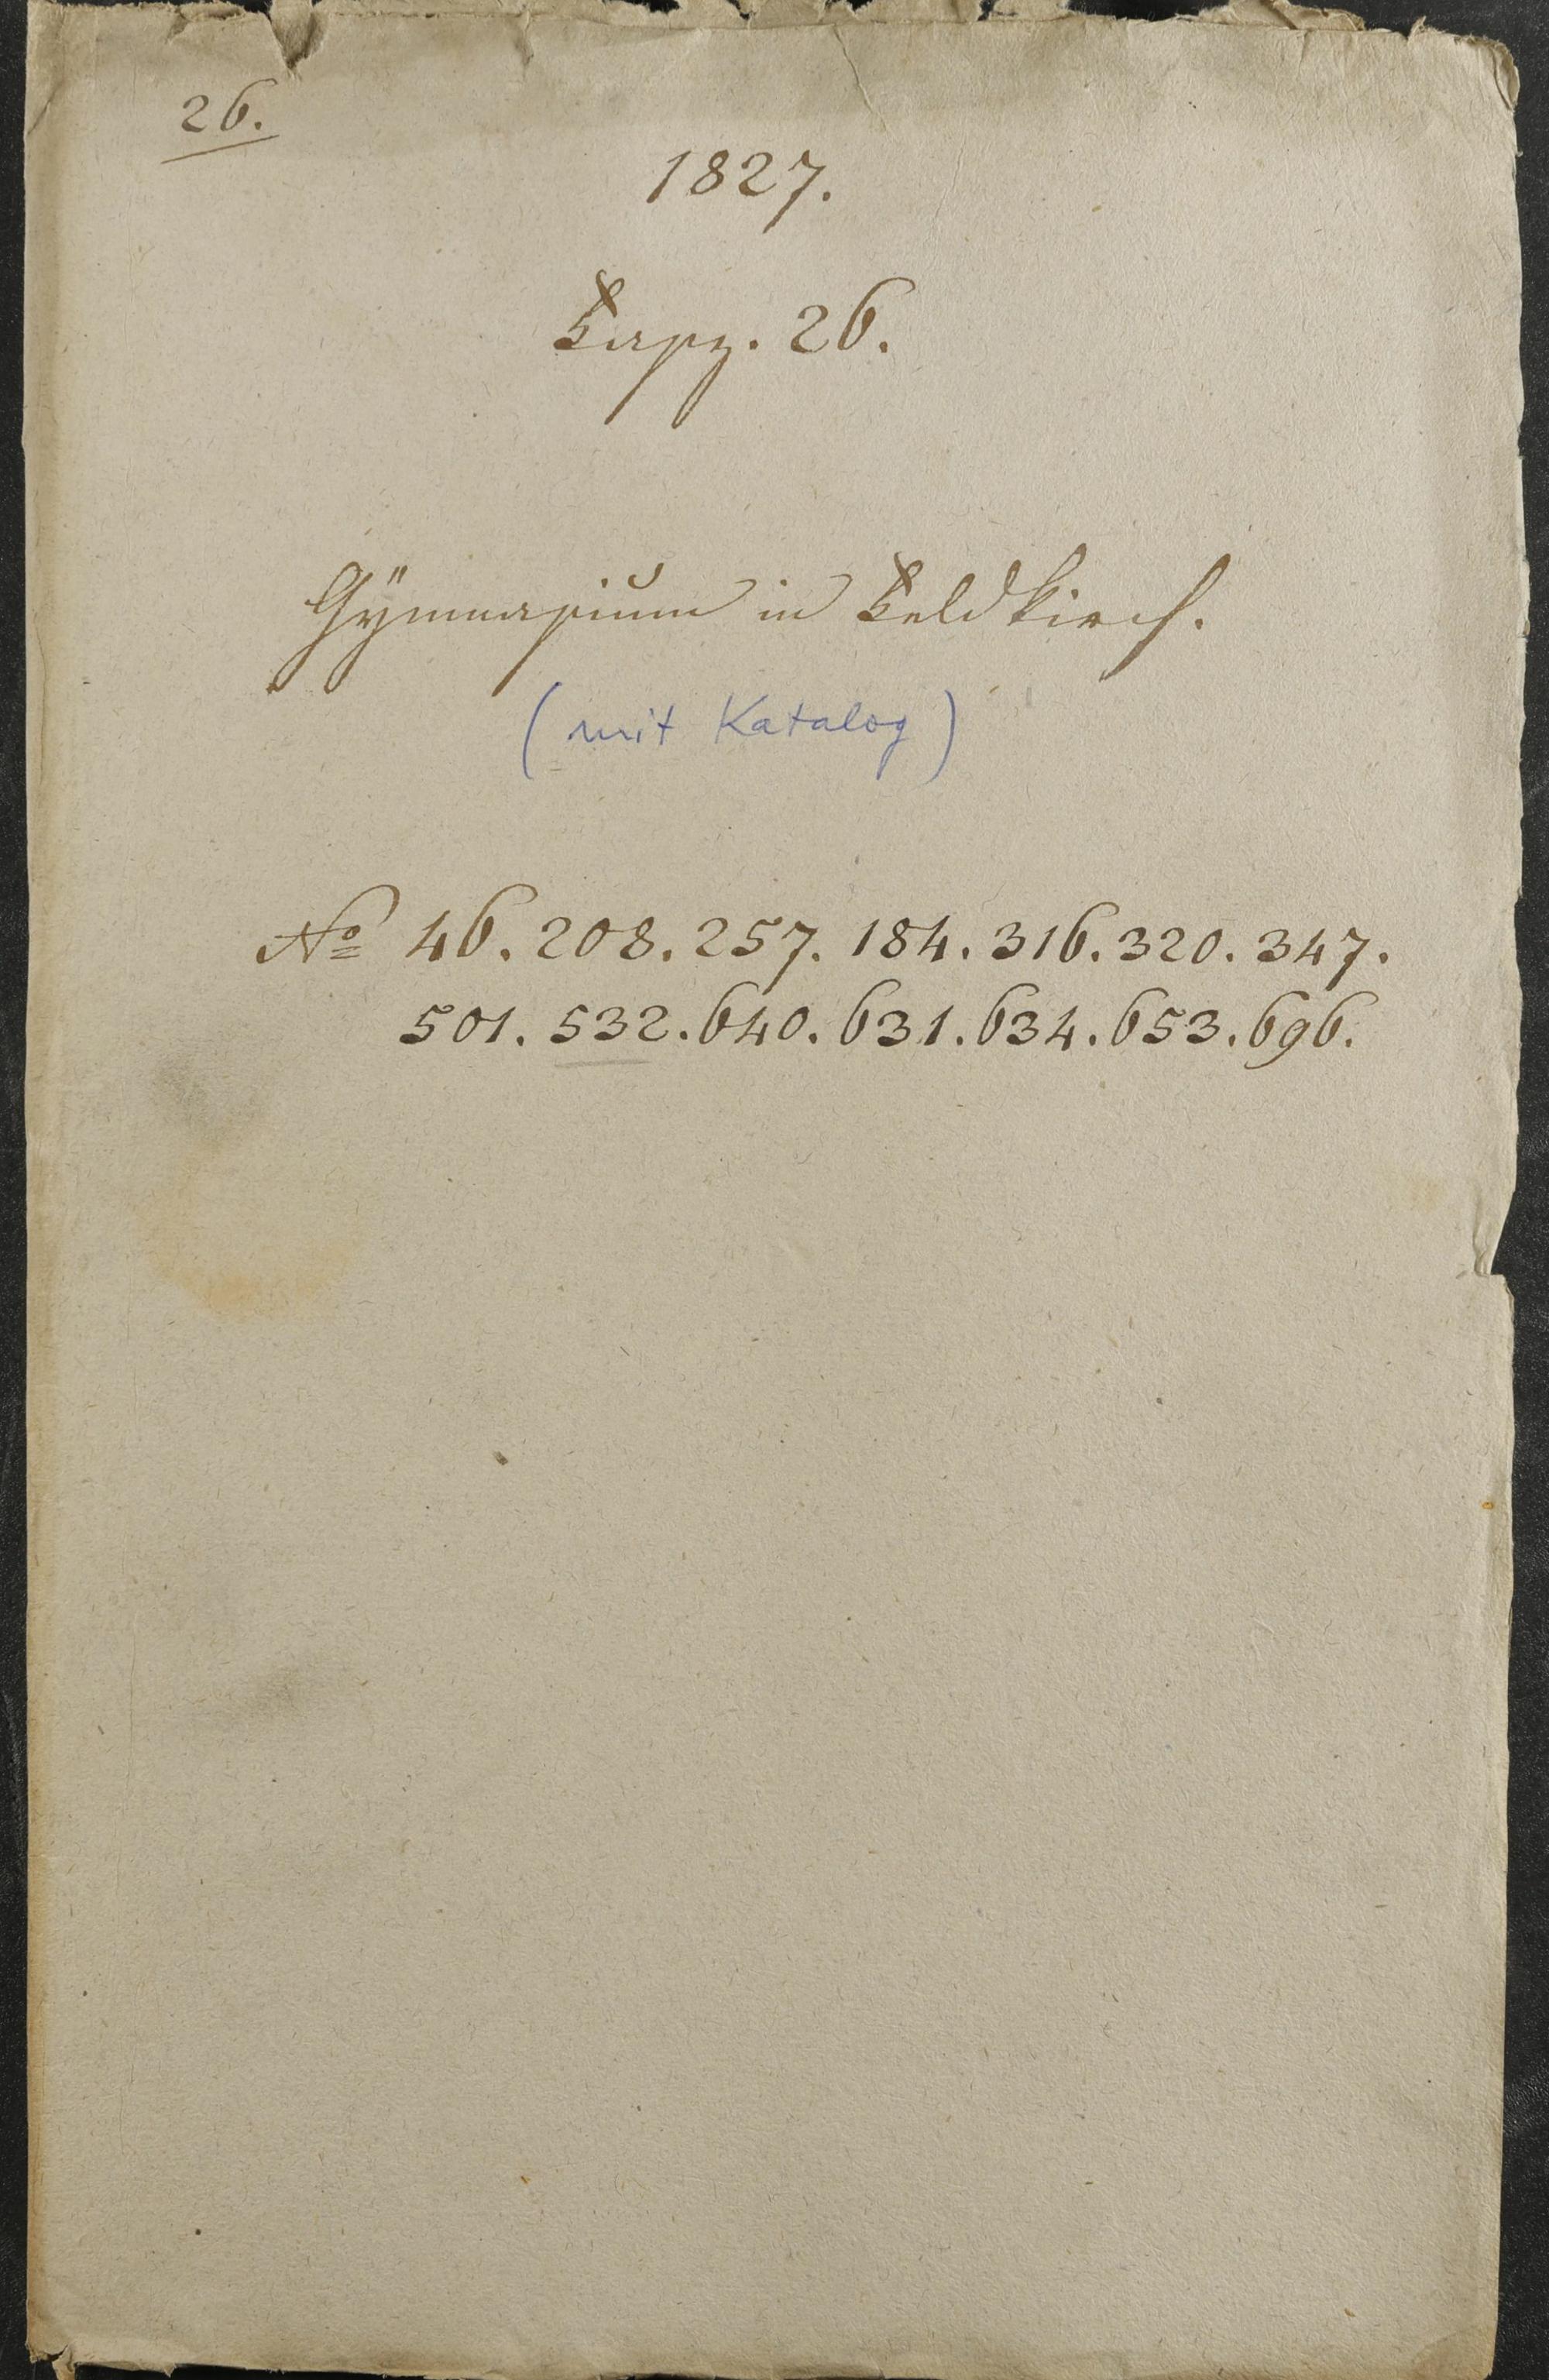 26.
1827.
Fasz. 26.
Gÿmnasium in Feldkirch.
(mit Katalog)
No 46. 208. 257. 184. 316. 320. 347.
501. 532. 640. 631. 634. 653. 696.